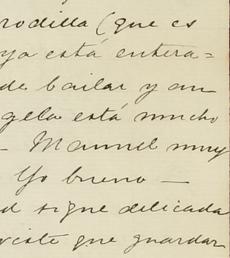 rodilla (que es
ya está entera=
de bailar y an
gela está mucho
- Manuel muy
Yo bueno —
d sigue delicada
viste que guardar